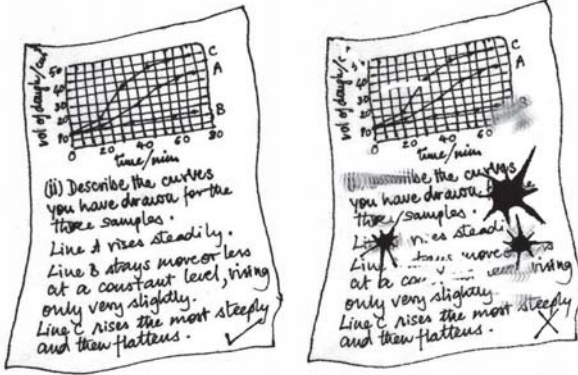 C
A
B
vol of dough/cm³
50
40
30
20
10
0
20
40
60
80
time/min
(ii) Describe the curves
you have drawn for the
three samples.
Line A rises steadily.
Line B stays more or less
at a constant level, rising
only very slightly.
Line C rises the most steeply
and then flattens.
C
A
B
vol of dough/c
40
30
20
10
0
20
40
60
time/min
ibe the curves
you have drawn
three samples.
rises steadi
Line stays move
at a rising
only very slightly
Line C rises the most steeply
and then flattens.